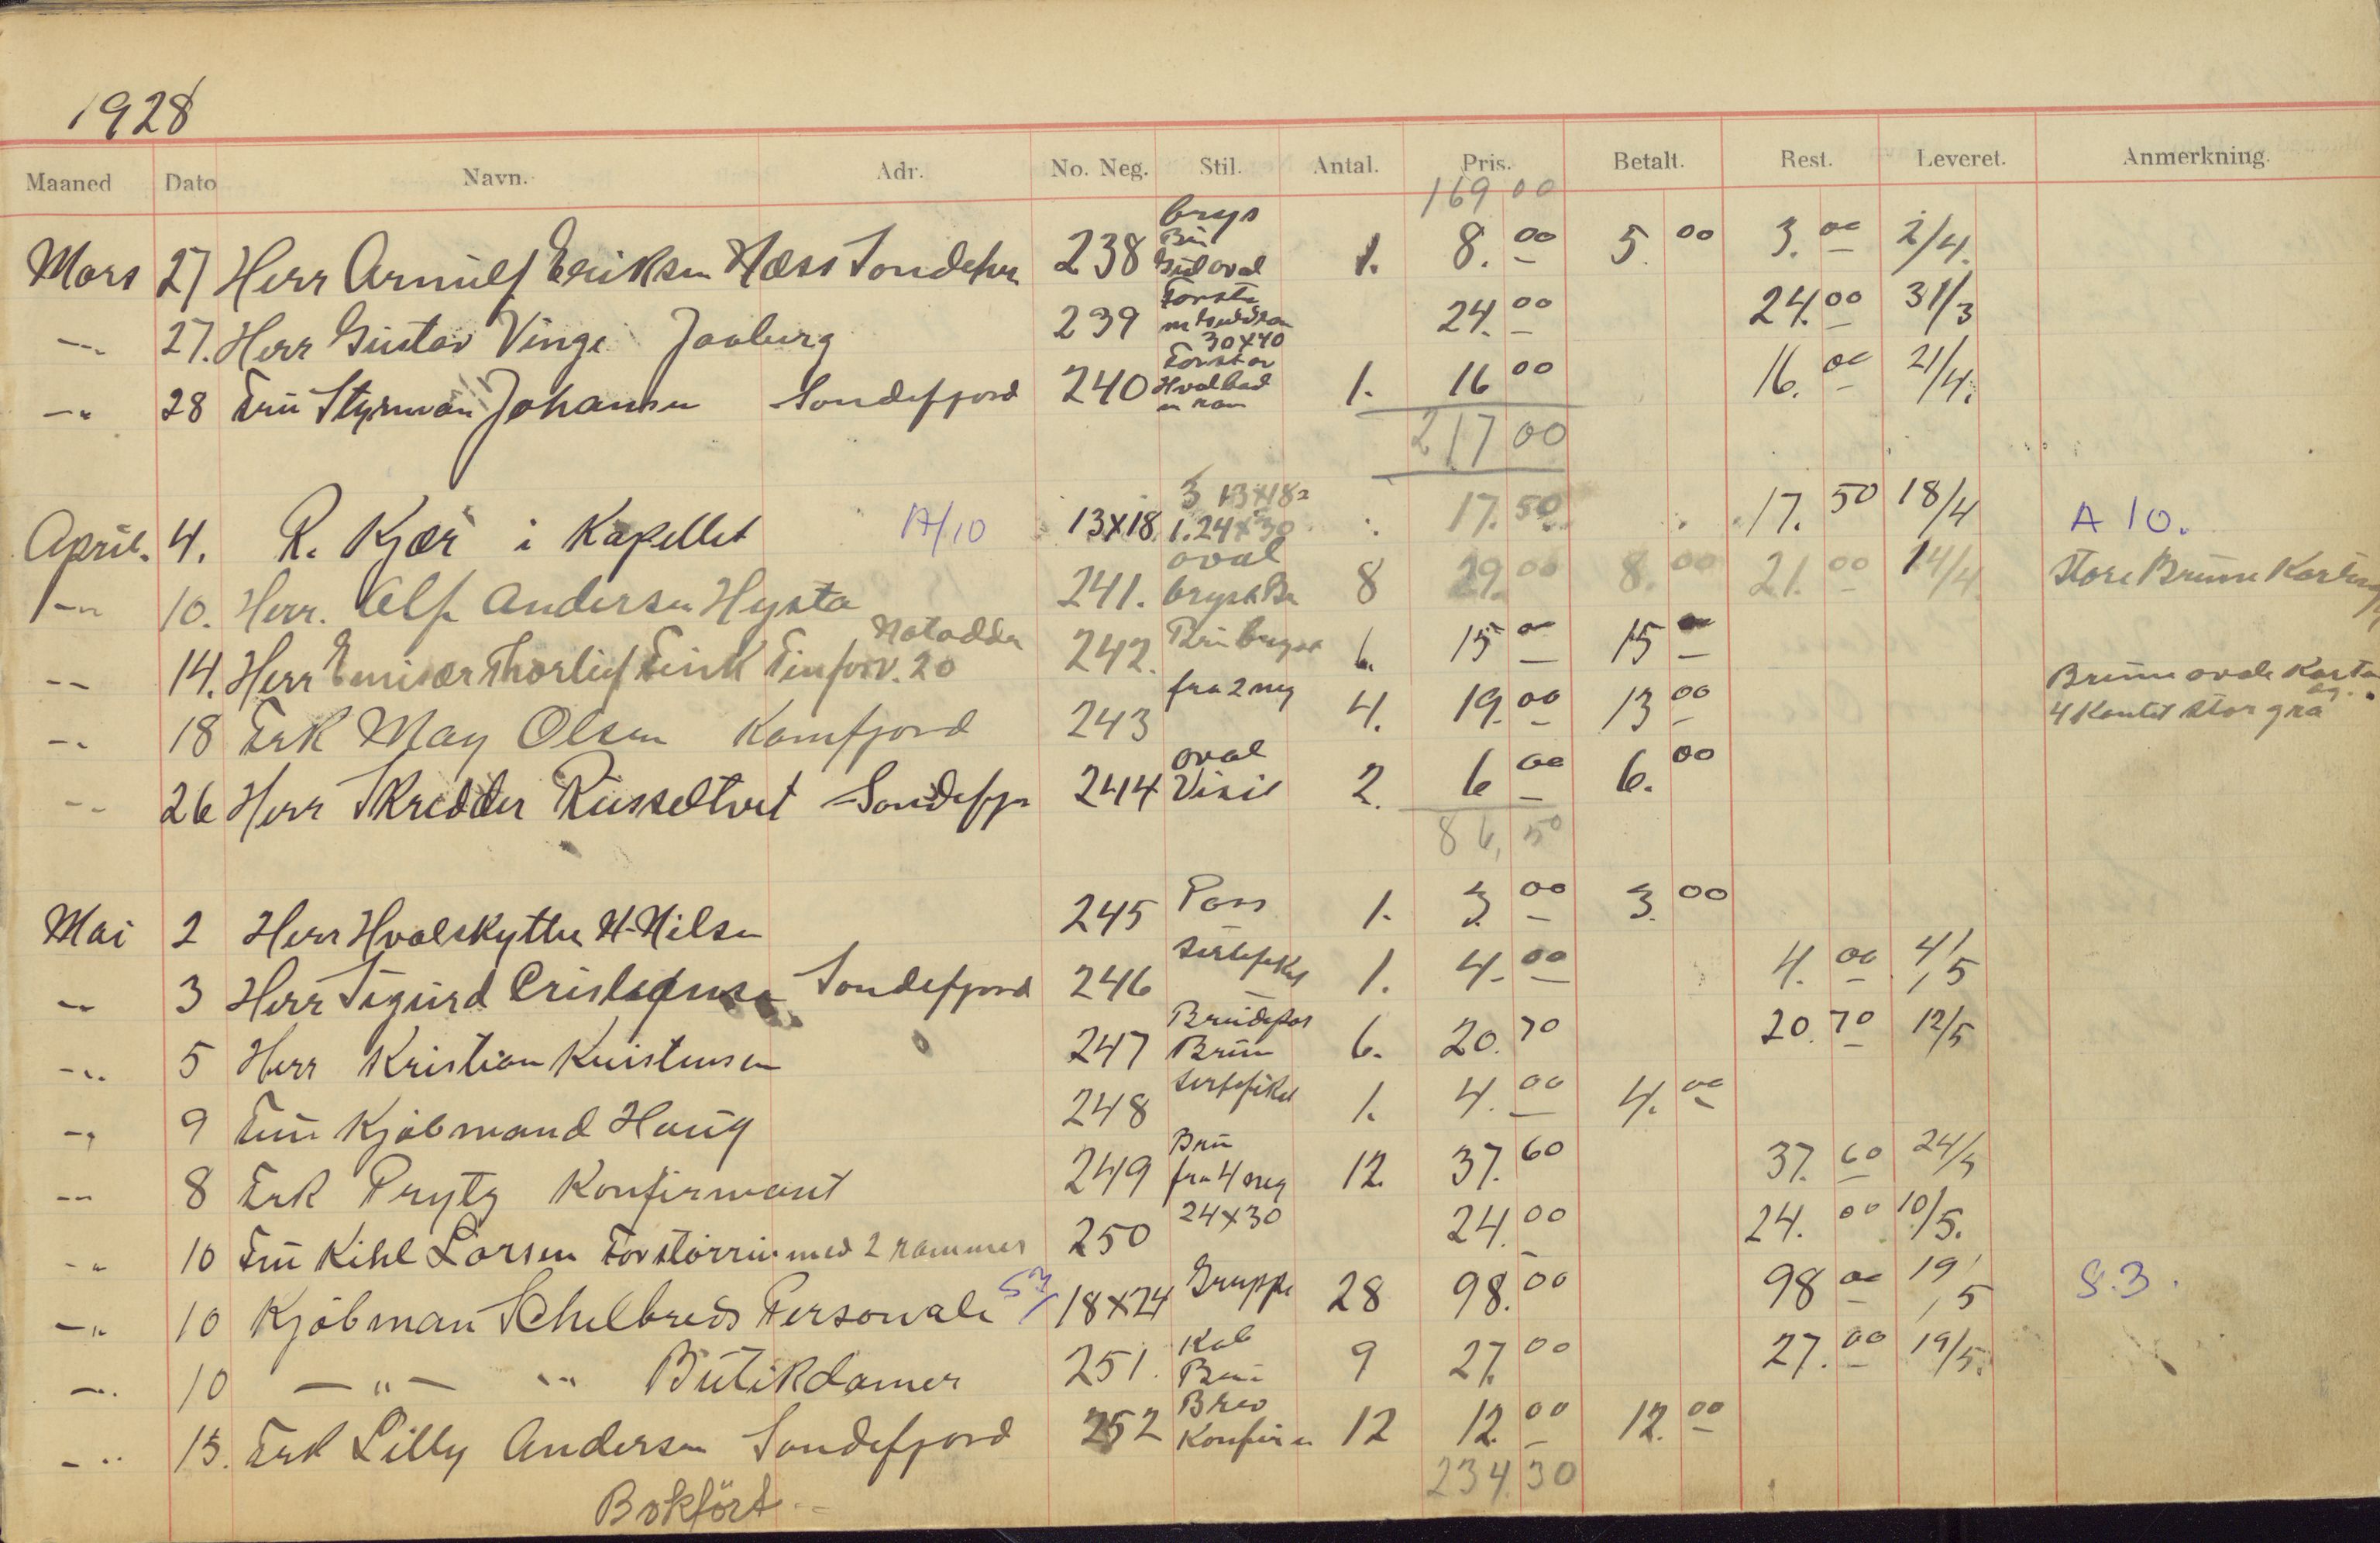 1928
Maaned Dato Navn. Adr. No. Neg. Stil. Antal. Pris. Betalt. Rest. Leveret. Anmerkning.
169 00
Mars 27 Herr Arnulf Eriksen Næss 238 brys Brü oval 1. 8.00 5.00 3.00 2/4.
-"- 27. Herr Güstav Vinge Jaaberg 239 24.00 24.00 31/3
30x40
-"- 28 Frü Styrman Johansen Sondefjord 240 1. 16 00 16.00 21/4.
217 00
April. 4. R. Kjær i Kapellet A/10 13x18. 3 13x18 1. 24x30 17.50 17.50 18/4 A 10.
-"- 10. Herr. Alf Andersen Hysta 241. oval bryst Br 8 29.00 8.00 21.00 14/4 store Brüne
-"- 14. Herr Emisær Thorleif Fink 20 Notodden 242. Brü bryst 6. 15 00 15 00
-"- 18 Frk May Olsen Kamfjord 243 fra 2 neg 4. 19.00 13 00 Brüne ovale
4 stor grå
-"- 26 Herr Skredder Rüsseltvet Sondefjo 244 oval Visit 2. 6 00 6.00
86,50
Mai 2 Herr Hvalskytter N. Nilsen 245 Pass 1. 3.00 3.00
-"- 3 Herr Sigürd Sondefjord 246 1. 4.00 4.00 4/5
-"- 5 Herr Kristian Kristensen 247 Brüdepar Brün 6. 20.70 20.70 12/5
-"- 9 Frü Kjøbmand Haüg 248 1. 4.00 4.00
-"- 8 Frk Prytz Konfirmant 249 Brü fra 4 neg 12. 37.60 37.60 24/5
-"- 10 Frü Kihl Larsen Forstörrin med 2 rammer 250 24x30 24.00 24.00 10/5.
-"- 10 Kjøbman Schelbreds Personale S3/ 18x24 Gruppe 28 98.00 98 00 19/5 S.3.
-"- 10 -"- " Bütikdamer 251. Kab Brü 9 27.00 27.00 19/5.
-"- 15. Frk Lilly Andersen Sondefjord 252 Brev Konfirm 12 12.00 12.00
234.30
Bokfört